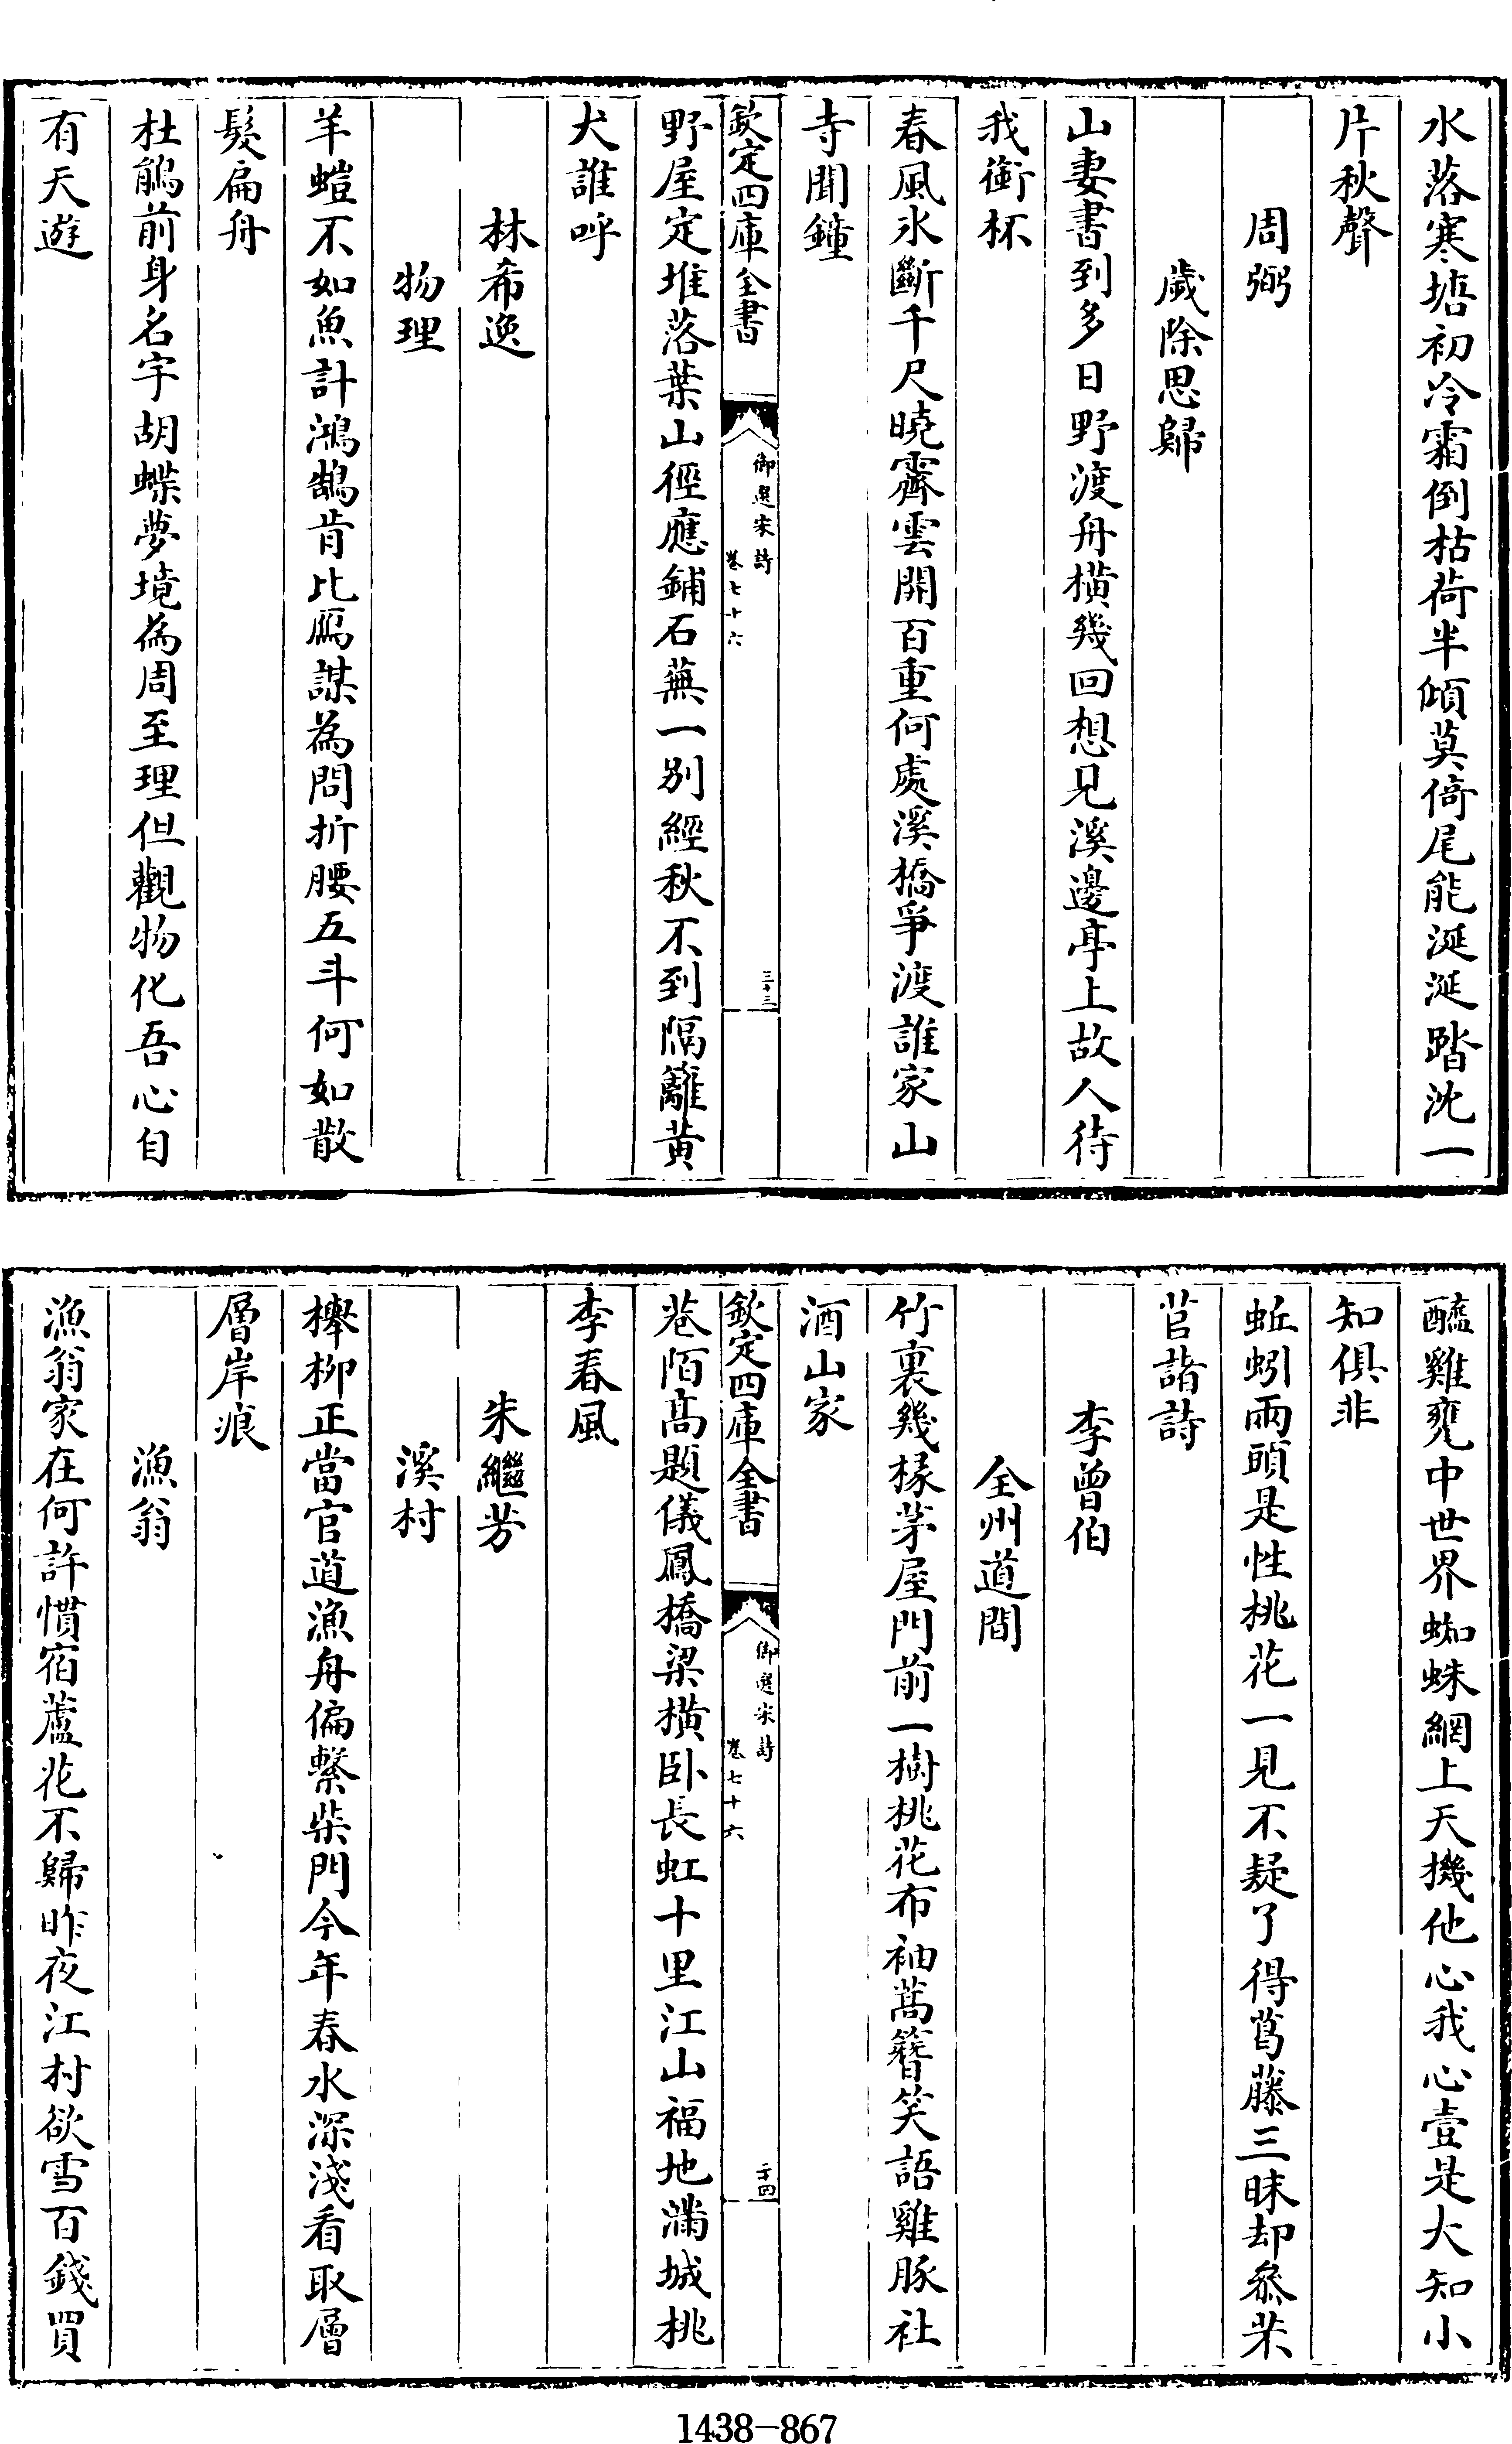 水落寒塘初冷霜倒枯荷半傾莫倚尾能涎涎踏沈一
片秋聲
周弼
歲除思歸
山妻書到多日野渡舟橫幾回想見溪邊亭上故人待
我銜杯
春風氷斷千尺曉霽雲開百重何處溪橋爭渡誰家山
寺聞鐘
欽定四庫全書
御選宋詩
卷七十六
三十三
野屋定堆落葉山徑應鋪石蕪一别經秋不到隔籬黄
犬誰呼
林希逸
物理
羊螘不如魚計鴻鵠肯比鴈謀為問折腰五斗何如散
髮扁舟
杜鵑前身名宇胡蝶夢境為周至理但觀物化吾心自
有天遊
醯雞甕中世界蜘蛛網上天機他心我心壹是大知小
知俱非
蚯蚓兩頭是性桃花一見不疑了得葛藤三昧却參柴
苢諸詩
李曾伯
全州道間
竹裏幾椽茅屋門前一樹桃花布袖蒿簪笑語雞豚社
酒山家
欽定四庫全書
御選宋詩
卷七十六
三十四
巷陌髙題儀鳳橋梁橫卧長虹十里江山福地滿城桃
李春風
朱繼芳
溪村
櫸柳正當官道漁舟偏繫柴門今年春水深淺看取層
層岸痕
漁翁
漁翁家在何許慣宿蘆花不歸昨夜江村欲雪百錢買
1438-867